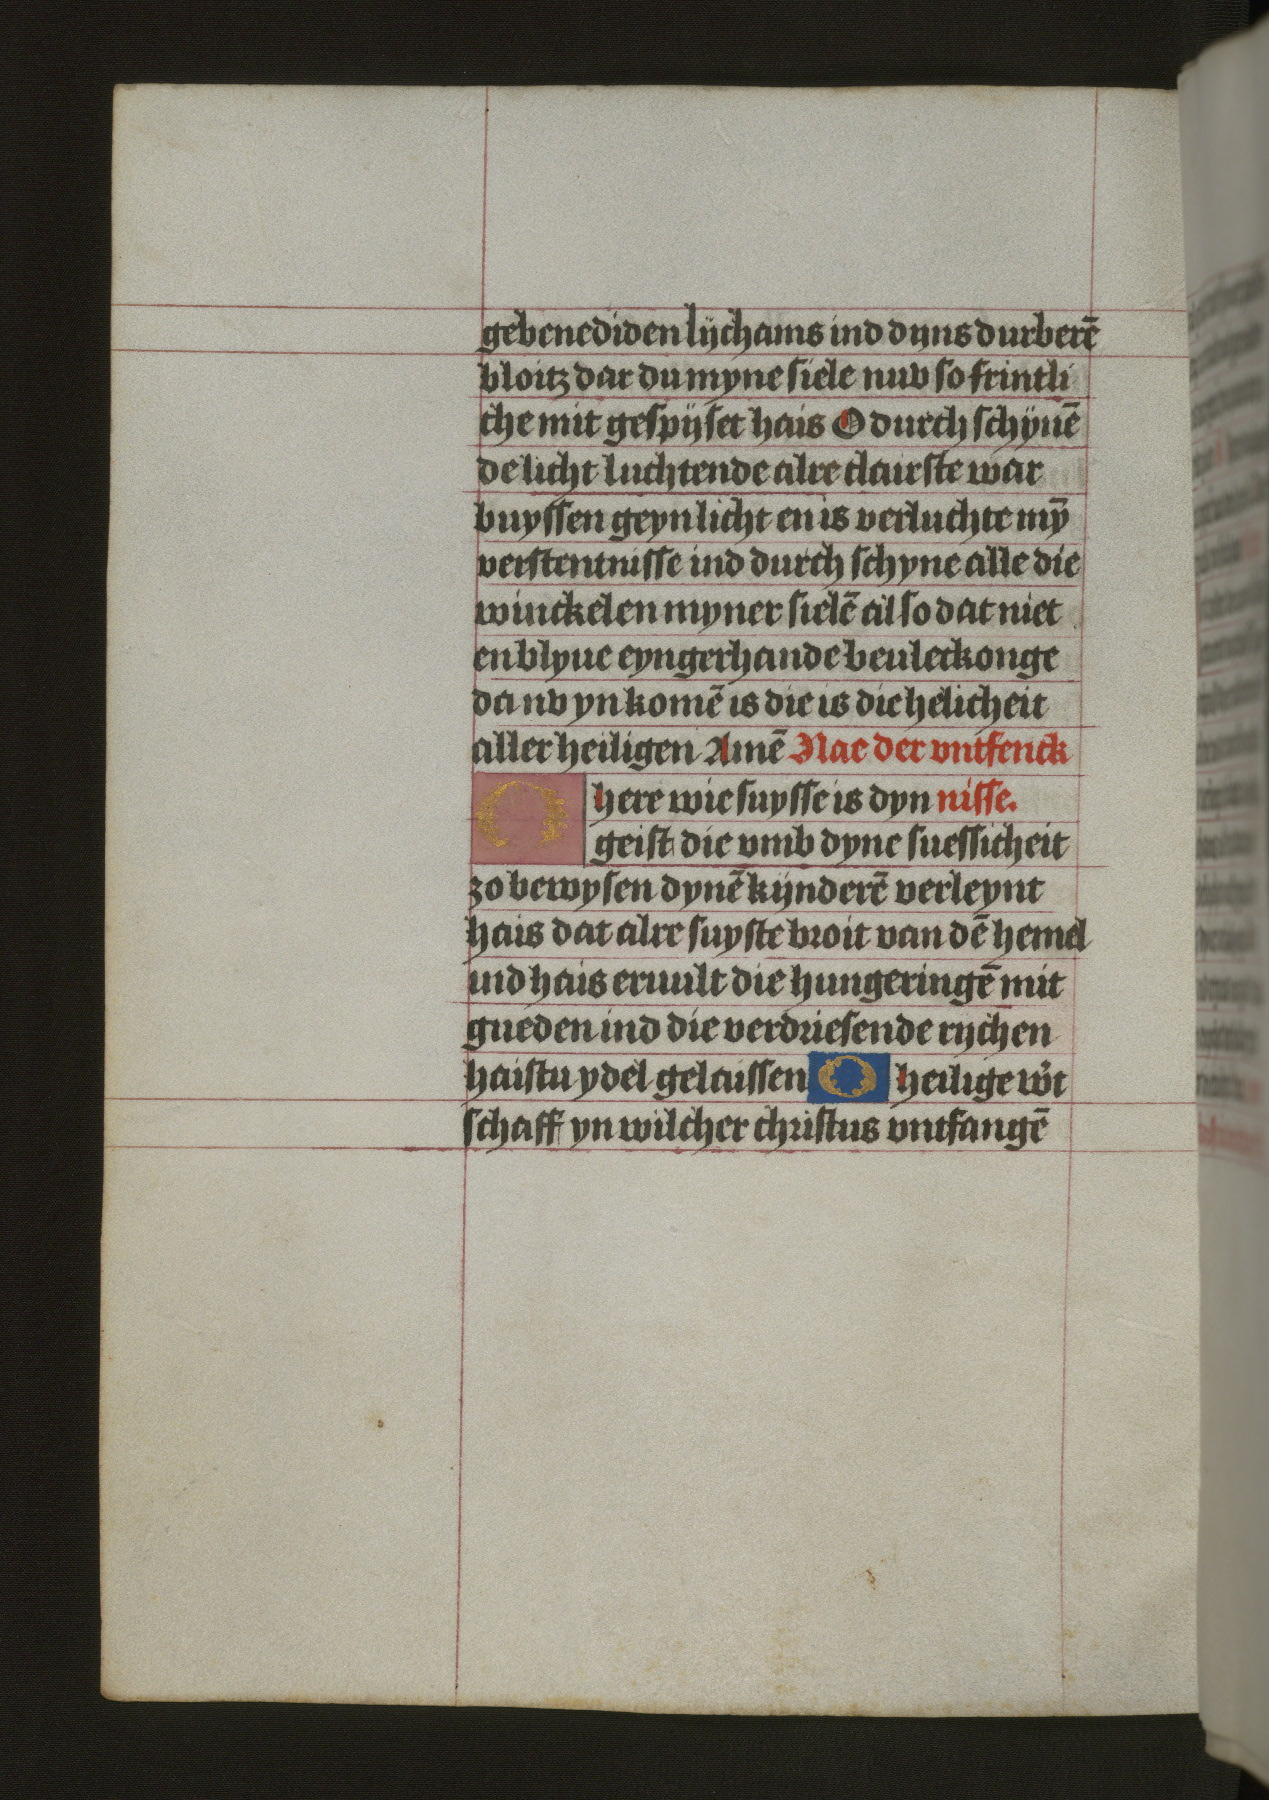 gebenediden lijchams ind dijns durberē
bloitz dar du myne siele nuv so frintli
che mit gespijset hais O durch schijnē
de licht luchtende alre clairste war
buyssen geyn licht en is verluchte mȳ
verstentnisse ind durch schyne alle die
winckelen myner sielē al so dat niet
en blyue eyngerhande beuleckonge
da nv yn komē is die is die helicheit
aller heiligen Amē Nae der vntfenck
O here wie suysse is dyn nisse.
geist die vmb dyne suessicheit
zo bewysen dynē kijnderē verleynt
hais dat alre suyste broit van dē hemel
ind hais eruult die hungeringē mit
gueden ind die verdriesende rychen
haistu ydel gelaissen O heilige wt
schaff yn wilcher christus vntfangē